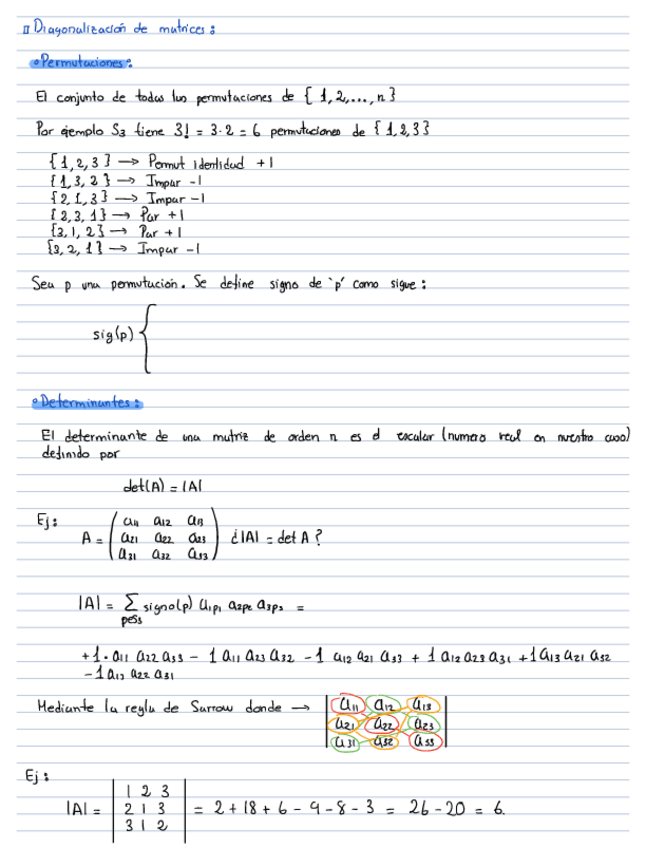 Diagonalización de matrices:
• Permutaciones:
El conjunto de todas las permutaciones de { 1, 2, ..., n }
Por ejemplo S₃ tiene 3! = 3·2 = 6 permutaciones de { 1, 2, 3 }
{ 1, 2, 3 } → Permut identidad +1
{ 1, 3, 2 } → Impar -1
{ 2, 1, 3 } → Impar -1
{ 2, 3, 1 } → Par +1
{ 3, 1, 2 } → Par +1
{ 3, 2, 1 } → Impar -1
Sea p una permutación. Se define signo de 'p' como sigue:
sig(p) {
• Determinantes:
El determinante de una matriz de orden n es el escalar (numero real en nuestro caso)
definido por
det(A) = |A|
Ej:
A = ( a₁₁ a₁₂ a₁₃
a₂₁ a₂₂ a₂₃
a₃₁ a₃₂ a₃₃ ) ¿|A| = det A?
|A| = Σ p∈S₃ signo(p) a₁p₁ a₂p₂ a₃p₃ =
+1· a₁₁ a₂₂ a₃₃ - 1 a₁₁ a₂₃ a₃₂ - 1 a₁₂ a₂₁ a₃₃ + 1 a₁₂ a₂₃ a₃₁ + 1 a₁₃ a₂₁ a₃₂
- 1 a₁₃ a₂₂ a₃₁
Mediante la regla de Sarrow donde → | a₁₁ a₁₂ a₁₃
a₂₁ a₂₂ a₂₃
a₃₁ a₃₂ a₃₃ |
Ej:
|A| = | 1 2 3
2 1 3
3 1 2 | = 2 + 18 + 6 - 9 - 8 - 3 = 26 - 20 = 6.